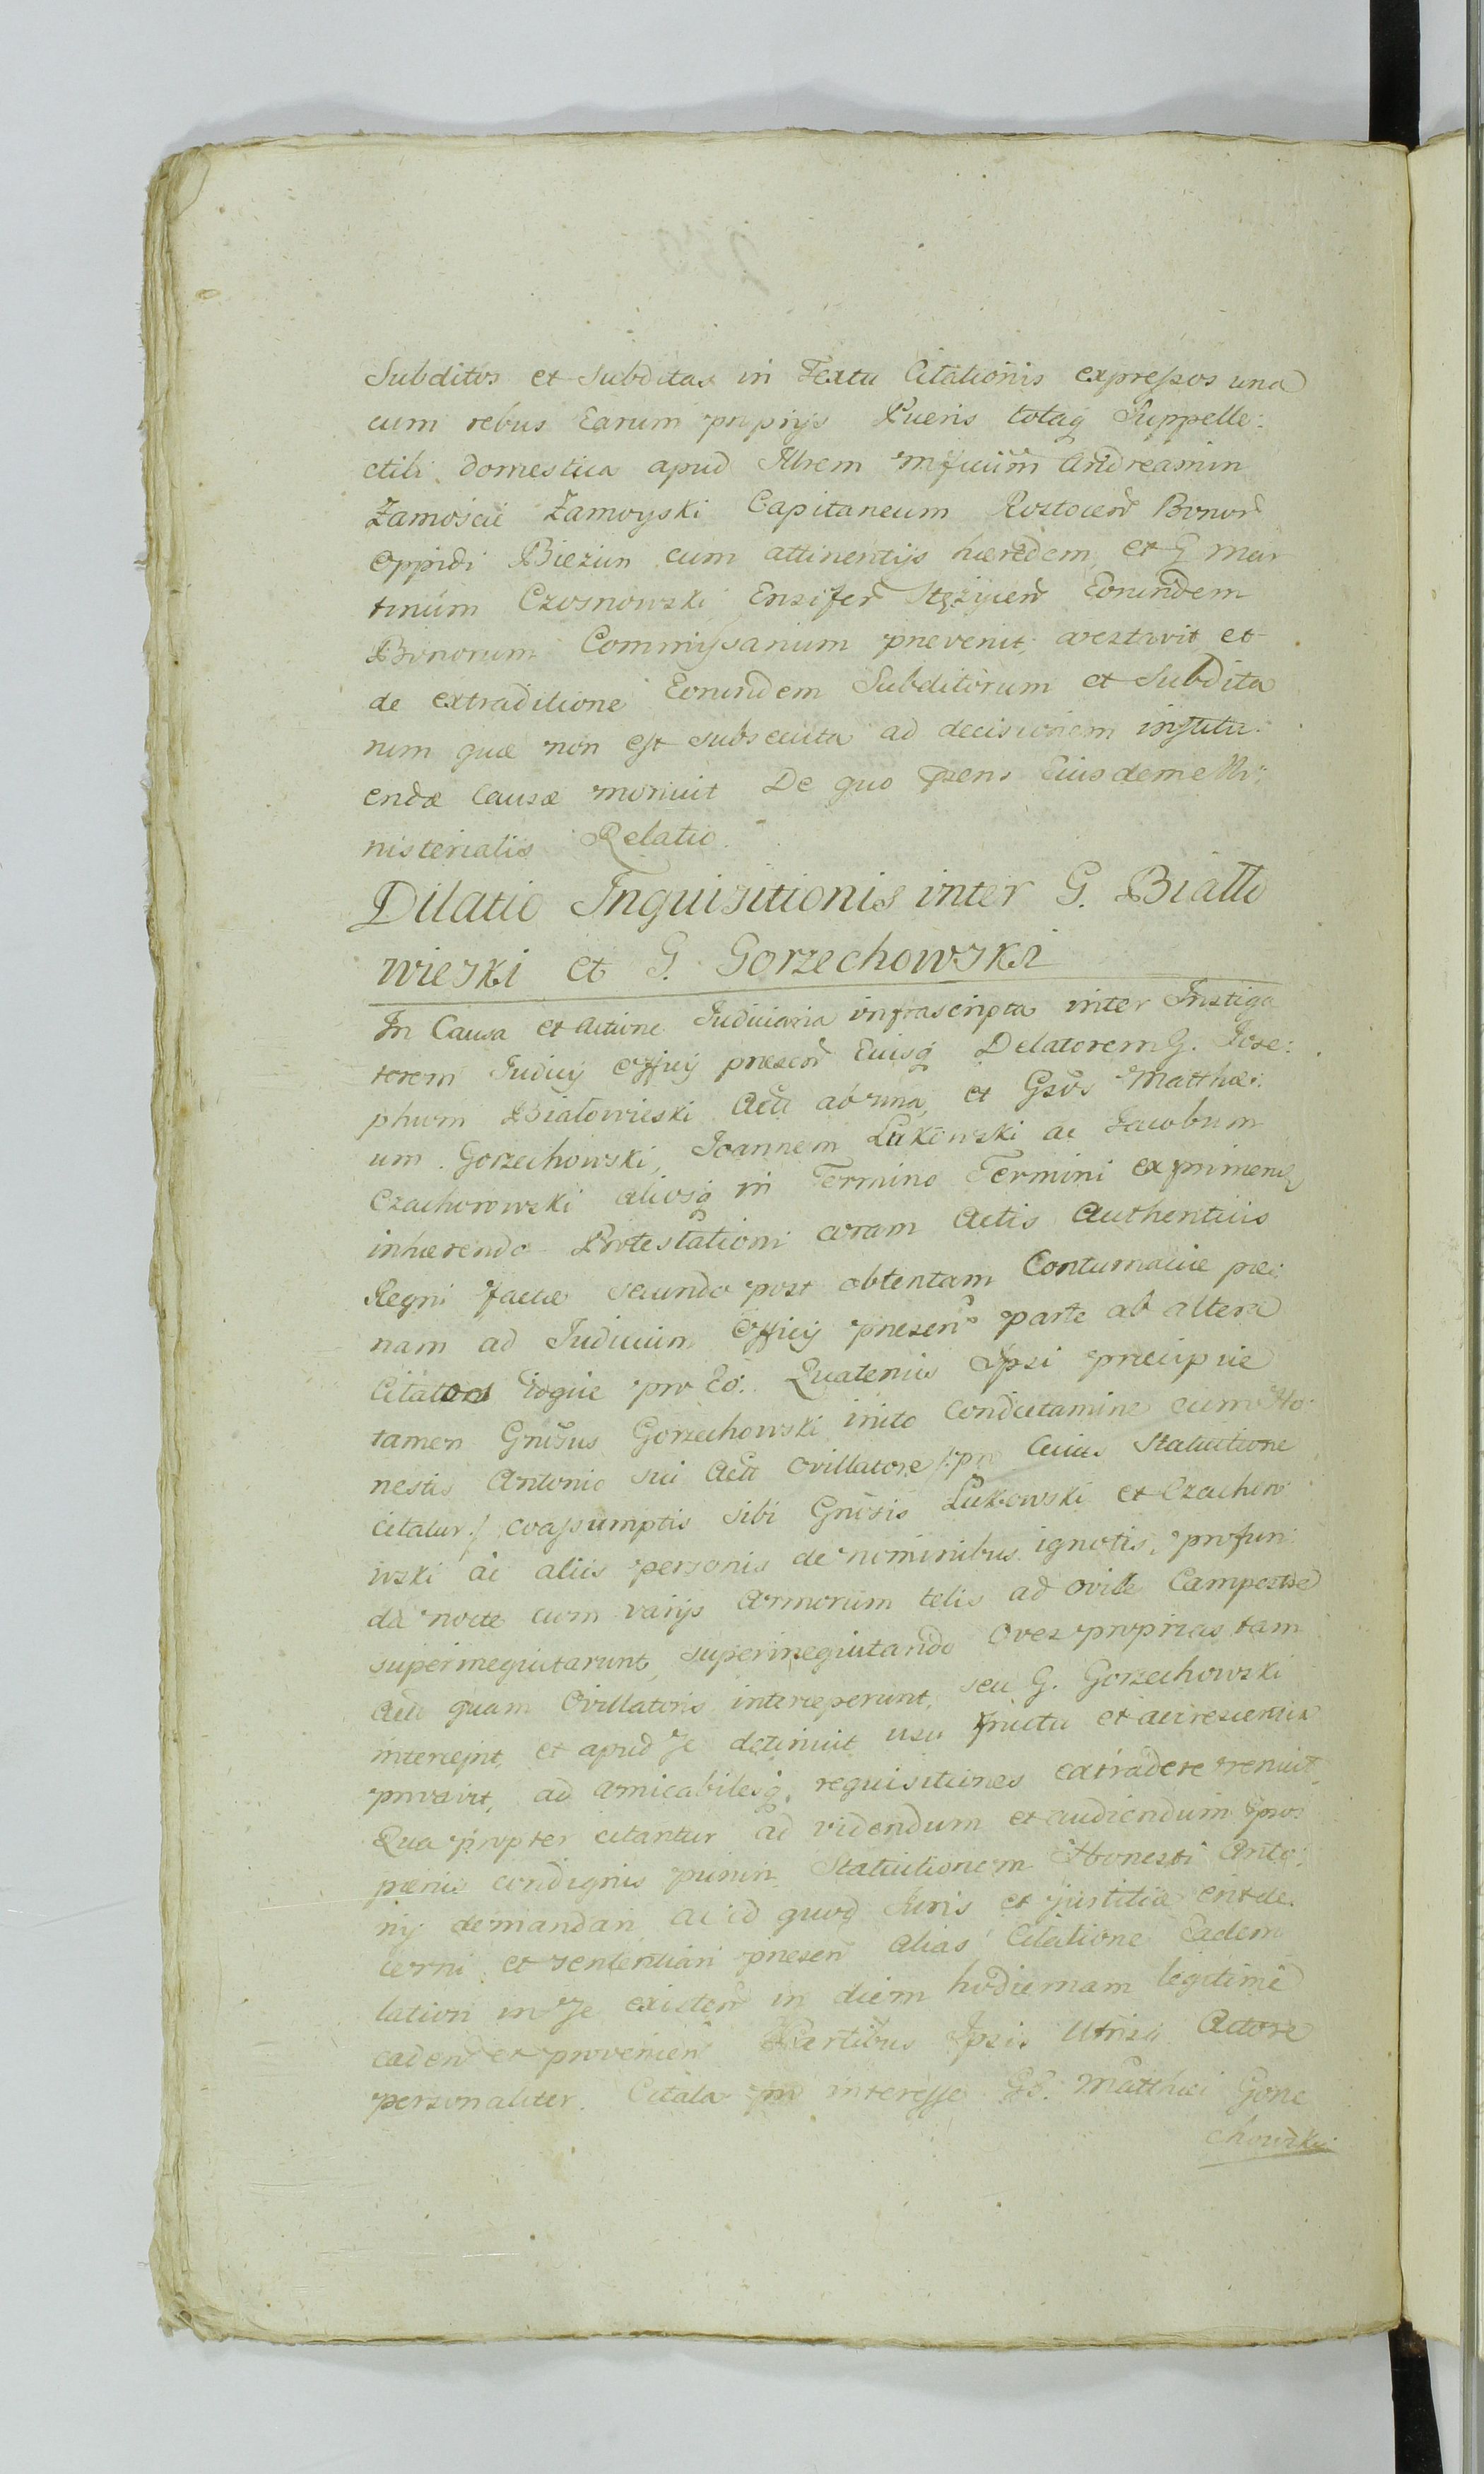 Subditos et Subditas in Textu Citationis expressos una
cum rebus Earum proprijs Pueris totaq Suppelle:
ctili domestica apud Illrem Mfficum Andream in
Zamoscie Zamoyski Capitaneum Rostocen Bonor
Oppidi Biezun cum attinentijs hæredem, et G Mar
tinum Czosnowski Ensifer Stężycen Eorundem
Bonorum Commissarium prævenit, arestavit et
de extraditione Eorundem Subditorum et Subdita
rum quæ non est subsecuta ad decisionem institu:
endæ Causæ monuit De quo præns Eiusdem Mi:
nisterialis Relatio.
Dilatio Inquisitionis inter G. Biallo
wieski et G. Gorzechowski
In Causa et Actione Iudiciaria infrascripta inter Instiga
torem Iudicij Officij præsen Eiusq Delatorem G. Jose:
phum Białowieski Act ab una, et Gsos Matthæ:
um Gorzechowski, Joannem Łukowski ac Jacobum
Czachorowski aliosq in Termino Termini exprimend
inhærendo Protestationi coram Actis Authenticis
Regni factæ secundo post obtentam Contumaciæ pœ:
nam ad Iudicium Officij præsen parte ab altera
Citatos Idque pro Eo. Quatenus Ipsi præcipue
tamen Gnrsus Gorzechowski inito Condictamine cum Ho:
nesto Antonio sui Act Ovillatore /: pro Cuius Statuitione
Citatur :/ coassumptis sibi Gnrsis Łukowski et Czachoro
wski ac aliis personis de nominibus ignotis, profun:
da nocte cum varijs Armorum telis ad ovile Campestre
superinequitarunt, superinequitando Oves proprias tam
Act quam Ovillatoris interceperunt, seu G. Gorzechowski
intercepit, et apud se detinuit usu fructu et accrescentia
privavit, ad amicabilesq requisitiones extradere renuit
Qua propter citantur ad videndum et audiendum Ipsos
pænis condignis puniri, Statuitionem Honesti Anto:
nij demandari ac id quod Iuris et justitiæ erit de:
cerni et sententiari præsen alias Citatione Eadem
latiori in se existen in diem hodiernam legitime
caden et provenien Partibus Ipsis Utrisq Actore
personaliter. Citata pro interesse GG. Matthæi Gorze
chowski